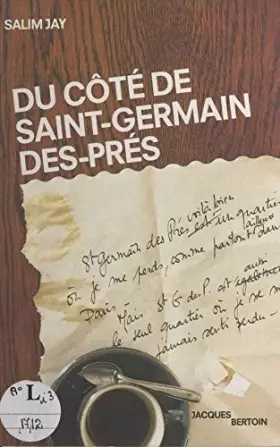 SALIM JAY
DU CÔTÉ DE
SAINT-GERMAIN
DES-PRÉS
voilà bien
St Germain des Prés est un quartier
ailleurs
où je me perds, comme partout dans
aussi
Paris. Mais St G. de P. est également
le seul quartier où je ne me
jamais senti perdu -
L
1712
JACQUES
BERTOIN